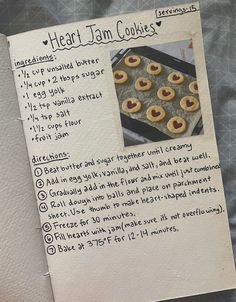 (servings: 15)
Heart Jam Cookies
ingredients:
• 1/2 cup unsalted butter
• 1/4 cup + 2 tbps sugar
• 1 egg yolk
• 1/2 tsp vanilla extract
• 1/4 tsp salt
• 1 1/2 cups flour
• fruit jam
directions:
① Beat butter and sugar together until creamy
② Add in egg yolk, vanilla, and salt, and beat well.
③ Gradually add in the flour and mix until just combined
④ Roll dough into balls and place on parchment
sheet. Use thumb to make heart-shaped indents.
⑤ Freeze for 30 minutes.
⑥ Fill hearts with jam (make sure its not overflowing).
⑦ Bake at 375°F for 12-14 minutes.